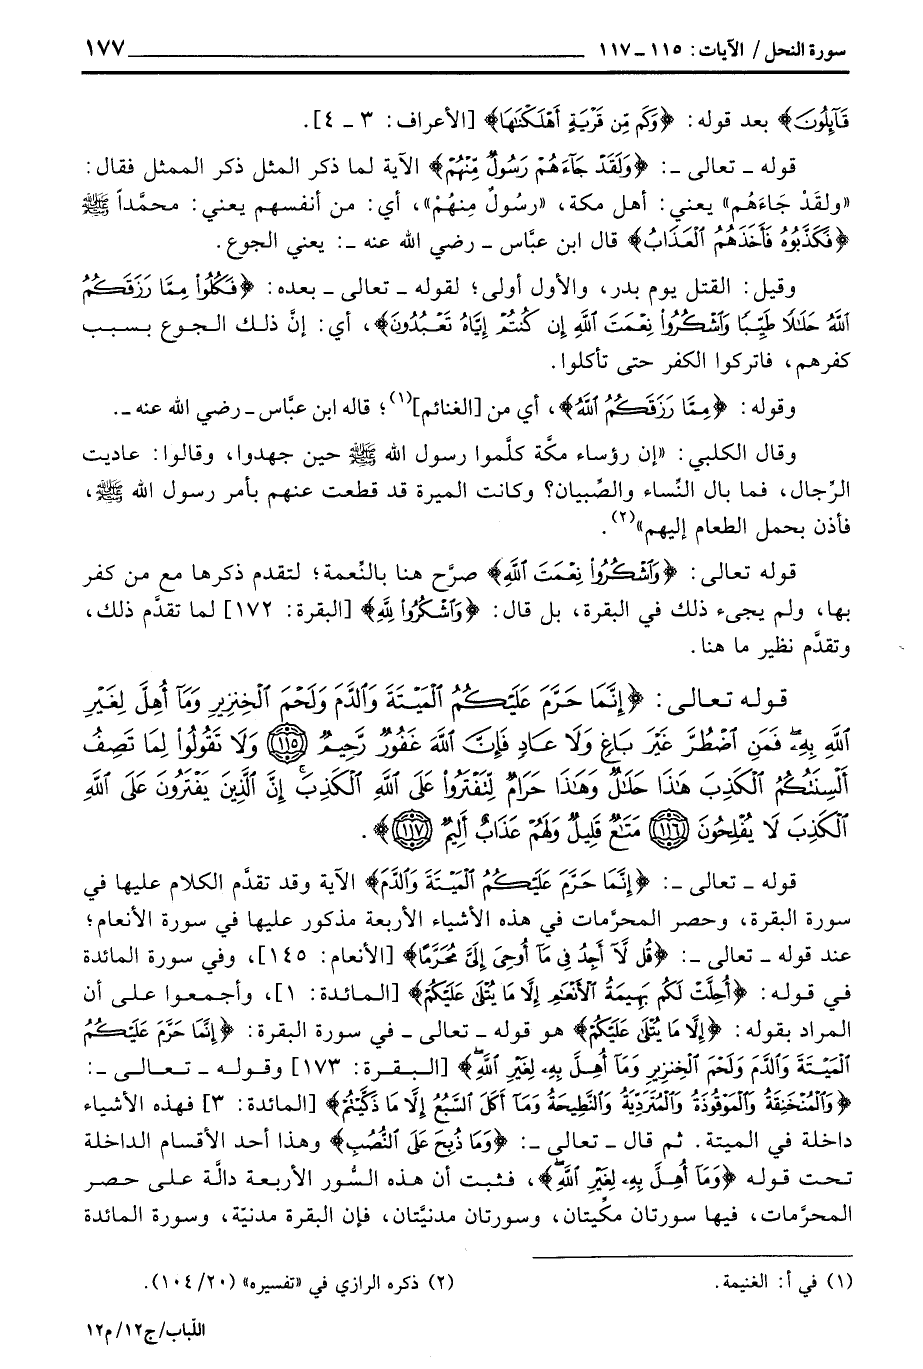 سورة النحل / الآيات: ١١٥ ـ ١١٧ ١٧٧
قَآئِلُونَ﴾ بعد قوله: ﴿وَكَم مِّن قَرْيَةٍ أَهْلَكْنَٰهَا﴾ [الأعراف: ٣ ـ ٤].
قوله ـ تعالى ـ: ﴿وَلَقَدْ جَآءَهُمْ رَسُولٌ مِّنْهُمْ﴾ الآية لما ذكر المثل ذكر الممثل فقال:
«ولقَدْ جَاءَهُم» يعني: أهل مكة، «رسُولٌ مِنهُمْ»، أي: من أنفسهم يعني: محمَّداً ﷺ
﴿فَكَذَّبُوهُ فَأَخَذَهُمُ ٱلْعَذَابُ﴾ قال ابن عبَّاس ـ رضي الله عنه ـ: يعني الجوع.
وقيل: القتل يوم بدر، والأول أولى؛ لقوله ـ تعالى ـ بعده: ﴿فَكُلُوا۟ مِمَّا رَزَقَكُمُ
ٱللَّهُ حَلَٰلًا طَيِّبًا وَٱشْكُرُوا۟ نِعْمَتَ ٱللَّهِ إِن كُنتُمْ إِيَّاهُ تَعْبُدُونَ﴾، أي: إنَّ ذلك الجوع بسبب
كفرهم، فاتركوا الكفر حتى تأكلوا.
وقوله: ﴿مِمَّا رَزَقَكُمُ ٱللَّهُ﴾، أي من [الغنائم](١)؛ قاله ابن عبَّاس ـ رضي الله عنه ـ.
وقال الكلبي: «إن رؤساء مكَّة كلَّموا رسول الله ﷺ حين جهدوا، وقالوا: عاديت
الرِّجال، فما بال النِّساء والصِّبيان؟ وكانت الميرة قد قطعت عنهم بأمر رسول الله ﷺ،
فأذن بحمل الطعام إليهم»(٢).
قوله تعالى: ﴿وَٱشْكُرُوا۟ نِعْمَتَ ٱللَّهِ﴾ صرَّح هنا بالنِّعمة؛ لتقدم ذكرها مع من كفر
بها، ولم يجىء ذلك في البقرة، بل قال: ﴿وَٱشْكُرُوا۟ لِلَّهِ﴾ [البقرة: ١٧٢] لما تقدَّم ذلك،
وتقدَّم نظير ما هنا.
قوله تعالى: ﴿إِنَّمَا حَرَّمَ عَلَيْكُمُ ٱلْمَيْتَةَ وَٱلدَّمَ وَلَحْمَ ٱلْخِنزِيرِ وَمَآ أُهِلَّ لِغَيْرِ
ٱللَّهِ بِهِۦ فَمَنِ ٱضْطُرَّ غَيْرَ بَاغٍ وَلَا عَادٍ فَإِنَّ ٱللَّهَ غَفُورٌ رَّحِيمٌ ﴿١١٥﴾ وَلَا تَقُولُوا۟ لِمَا تَصِفُ
أَلْسِنَتُكُمُ ٱلْكَذِبَ هَٰذَا حَلَٰلٌ وَهَٰذَا حَرَامٌ لِّتَفْتَرُوا۟ عَلَى ٱللَّهِ ٱلْكَذِبَ إِنَّ ٱلَّذِينَ يَفْتَرُونَ عَلَى ٱللَّهِ
ٱلْكَذِبَ لَا يُفْلِحُونَ ﴿١١٦﴾ مَتَٰعٌ قَلِيلٌ وَلَهُمْ عَذَابٌ أَلِيمٌ ﴿١١٧﴾﴾.
قوله ـ تعالى ـ: ﴿إِنَّمَا حَرَّمَ عَلَيْكُمُ ٱلْمَيْتَةَ وَٱلدَّمَ﴾ الآية وقد تقدَّم الكلام عليها في
سورة البقرة، وحصر المحرَّمات في هذه الأشياء الأربعة مذكور عليها في سورة الأنعام؛
عند قوله ـ تعالى ـ: ﴿قُل لَّآ أَجِدُ فِى مَآ أُوحِىَ إِلَىَّ مُحَرَّمًا﴾ [الأنعام: ١٤٥]، وفي سورة المائدة
في قوله: ﴿أُحِلَّتْ لَكُم بَهِيمَةُ ٱلْأَنْعَٰمِ إِلَّا مَا يُتْلَىٰ عَلَيْكُمْ﴾ [المائدة: ١]، وأجمعوا على أن
المراد بقوله: ﴿إِلَّا مَا يُتْلَىٰ عَلَيْكُمْ﴾ هو قوله ـ تعالى ـ في سورة البقرة: ﴿إِنَّمَا حَرَّمَ عَلَيْكُمُ
ٱلْمَيْتَةَ وَٱلدَّمَ وَلَحْمَ ٱلْخِنزِيرِ وَمَآ أُهِلَّ بِهِۦ لِغَيْرِ ٱللَّهِ﴾ [البقرة: ١٧٣] وقوله ـ تعالى ـ:
﴿وَٱلْمُنْخَنِقَةُ وَٱلْمَوْقُوذَةُ وَٱلْمُتَرَدِّيَةُ وَٱلنَّطِيحَةُ وَمَآ أَكَلَ ٱلسَّبُعُ إِلَّا مَا ذَكَّيْتُمْ﴾ [المائدة: ٣] فهذه الأشياء
داخلة في الميتة. ثم قال ـ تعالى ـ: ﴿وَمَا ذُبِحَ عَلَى ٱلنُّصُبِ﴾ وهذا أحد الأقسام الداخلة
تحت قوله ﴿وَمَآ أُهِلَّ بِهِۦ لِغَيْرِ ٱللَّهِ﴾، فثبت أن هذه السُّور الأربعة دالَّة على حصر
المحرَّمات، فيها سورتان مكِّيتان، وسورتان مدنيَّتان، فإن البقرة مدنيّة، وسورة المائدة
(١) في أ: الغنيمة. (٢) ذكره الرازي في «تفسيره» (٢٠/١٠٤).
اللّباب/ج١٢/م١٢